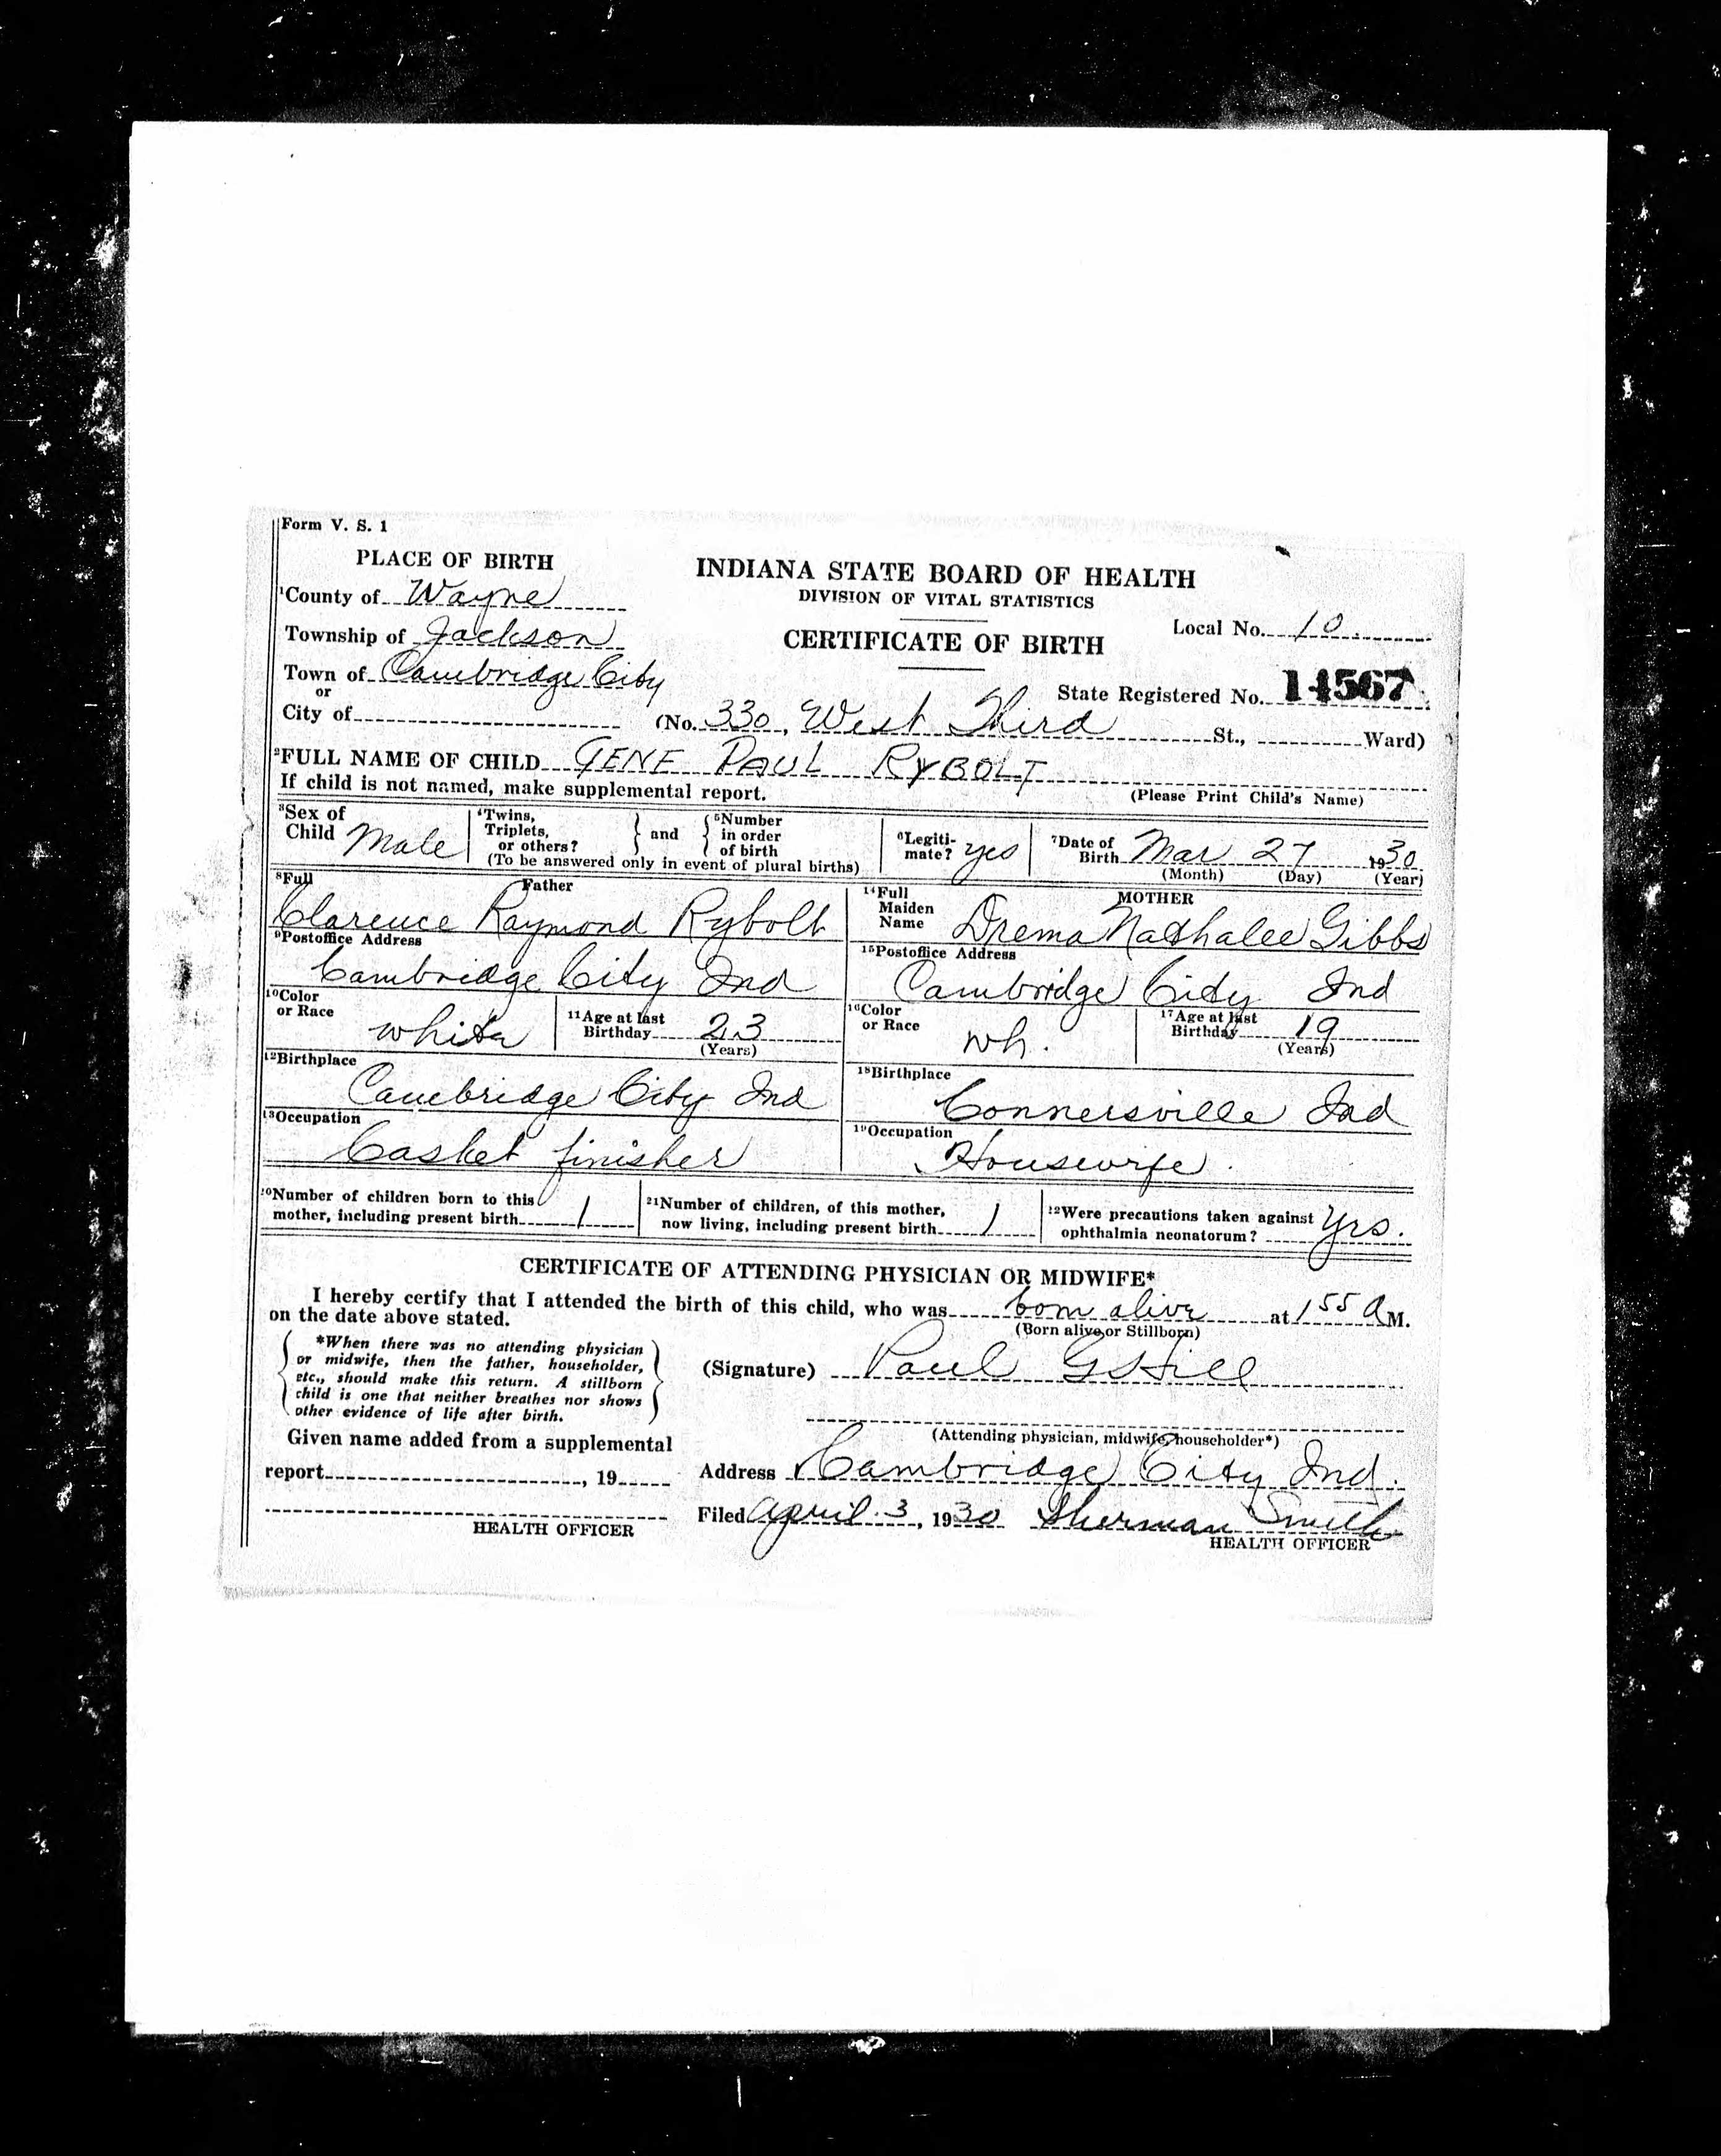 Form V. S. 1
PLACE OF BIRTH
INDIANA STATE BOARD OF HEALTH
DIVISION OF VITAL STATISTICS
CERTIFICATE OF BIRTH
1County of Wayne
Township of Jackson
Local No. 10
Town of Cambridge City
or
City of
State Registered No. 14567
(No. 330, West Third St., Ward)
2FULL NAME OF CHILD GENE PAUL RYBOLT
If child is not named, make supplemental report.
(Please Print Child's Name)
3Sex of Child Male
4Twins, Triplets, or others? } and { 5Number in order of birth
(To be answered only in event of plural births)
6Legiti-mate? yes
7Date of Birth Mar 27 1930
(Month) (Day) (Year)
8Full Father
Clarence Raymond Rybolt
14Full Maiden Name MOTHER
Drema Nathalee Gibbs
9Postoffice Address
Cambridge City Ind
15Postoffice Address
Cambridge City Ind
10Color or Race white
11Age at last Birthday 23
(Years)
16Color or Race wh.
17Age at last Birthday 19
(Years)
12Birthplace
Cambridge City Ind
18Birthplace
Connersville Ind
13Occupation
Casket finisher
19Occupation
Housewife
20Number of children born to this mother, including present birth 1
21Number of children, of this mother, now living, including present birth 1
22Were precautions taken against ophthalmia neonatorum? Yes.
CERTIFICATE OF ATTENDING PHYSICIAN OR MIDWIFE*
I hereby certify that I attended the birth of this child, who was born alive at 1 55 A M.
on the date above stated.
(Born alive or Stillborn)
*When there was no attending physician
or midwife, then the father, householder,
etc., should make this return. A stillborn
child is one that neither breathes nor shows
other evidence of life after birth.
(Signature) Paul G Hill
(Attending physician, midwife, householder*)
Given name added from a supplemental
report , 19
HEALTH OFFICER
Address Cambridge City Ind.
Filed April 3, 1930 Sherman Smith
HEALTH OFFICER